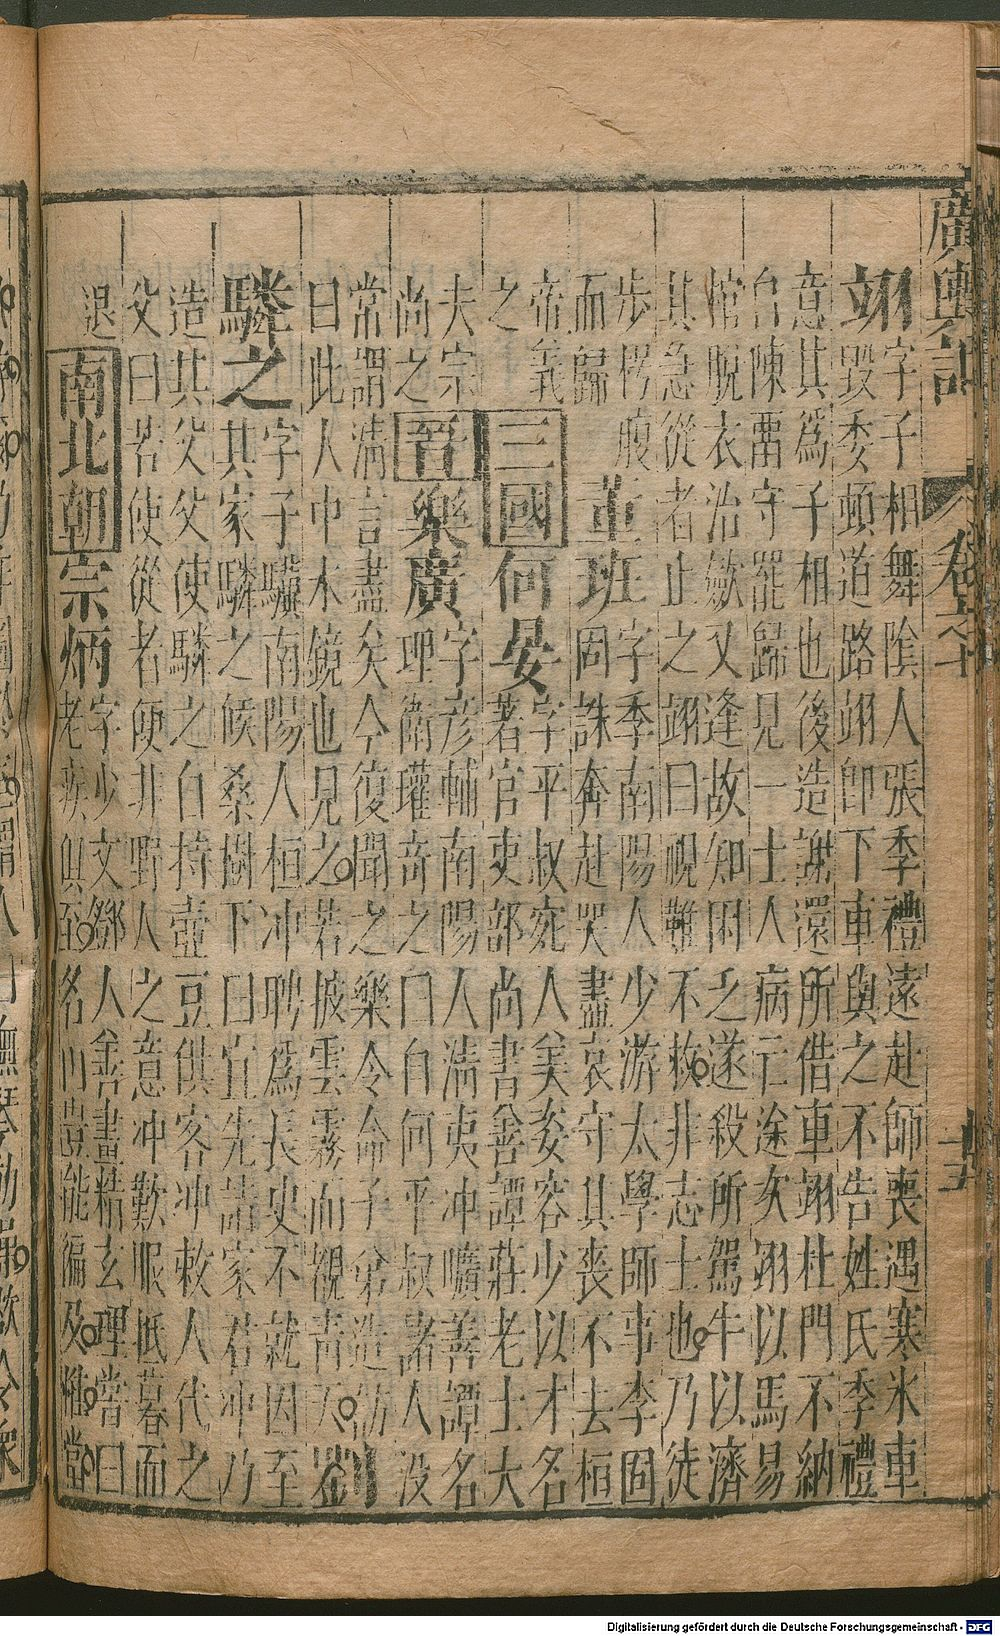 廣輿記
翊字子相舞陰人張季禮遠赴師喪遇寒氷車
毀委頓道路翊即下車與之不告姓氏季禮
意其爲子相也後造謝還所借車翊杜門不納
台陳畱守罷歸見一士人病亡途次翊以馬易
棺脫衣治斂又逢故知困乏遂殺所駕牛以濟
其急從者止之翊曰視難不救非志士也乃徒
步枵腹
而歸
董班字季南陽人少游太學師事李固
固誅奔赴哭盡哀守其喪不去桓
帝義
之
三國何晏字平叔宛人美姿容少以才名
著官吏部尚書善譚莊老士大
夫宗
尚之
晉樂廣字彥輔南陽人清夷冲曠善譚名
理衛瓘奇之曰自何平叔諸人没
常謂清言盡矣今復聞之樂令命子弟造訪
曰此人中水鏡也見之若披雲霧而覩青天
劉
驎之字子驥南陽人桓冲聘爲長史不就因至
其家驎之候桑樹下曰宜先詣家君冲乃
造其父父使驎之自持壺豆供客冲敕人代之
父曰若使從者便非野人之意冲歎眠抵暮而
退
南北朝宗炳字少文鄧人善畫精玄理嘗曰
老疾俱至名山豈能徧及惟當
Digitalisierung gefördert durch die Deutsche Forschungsgemeinschaft - DFG